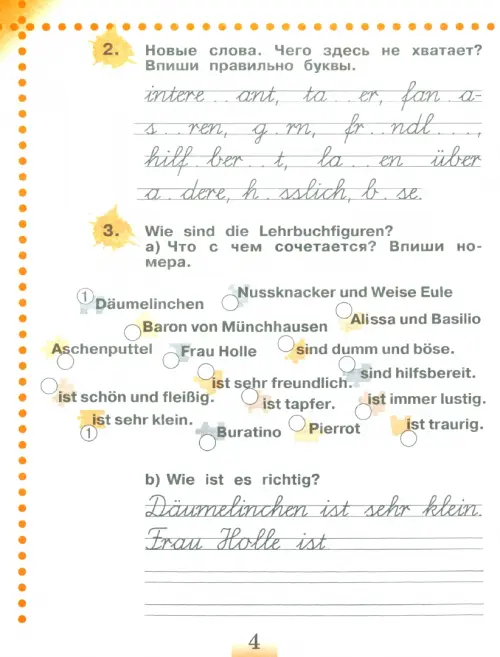 2. Новые слова. Чего здесь не хватает?
Впиши правильно буквы.
intere . . ant, ta . . er, fan . a-
s . . ren, g . rn, fr . ndl . . . ,
hilf . ber . . t, la . . en über
a . dere, h . sslich, b . se.
3. Wie sind die Lehrbuchfiguren?
а) Что с чем сочетается? Впиши но-
мера.
1 Däumelinchen
Nussknacker und Weise Eule
Baron von Münchhausen
Alissa und Basilio
Aschenputtel
Frau Holle
sind dumm und böse.
ist sehr freundlich.
sind hilfsbereit.
ist schön und fleißig.
ist tapfer.
ist immer lustig.
ist sehr klein.
1
Buratino
Pierrot
ist traurig.
b) Wie ist es richtig?
Däumelinchen ist sehr klein.
Frau Holle ist
4